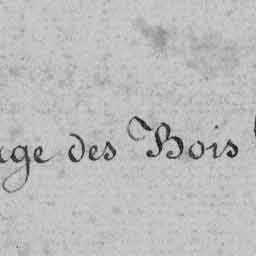 age des Bois